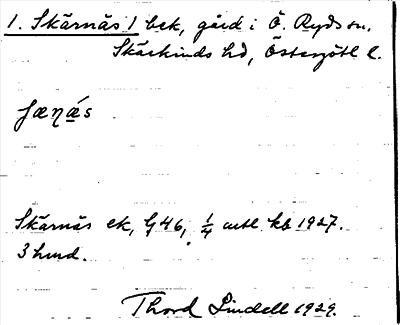 1. Skärnäs 1 bek, gård i Ö. Ryds sn.
Skärkinds hd, Östergötl l.
Skärnäs ek, G46, 1/4 mtl kb 1927.
3 hmd.
Thord Lindell 1929.